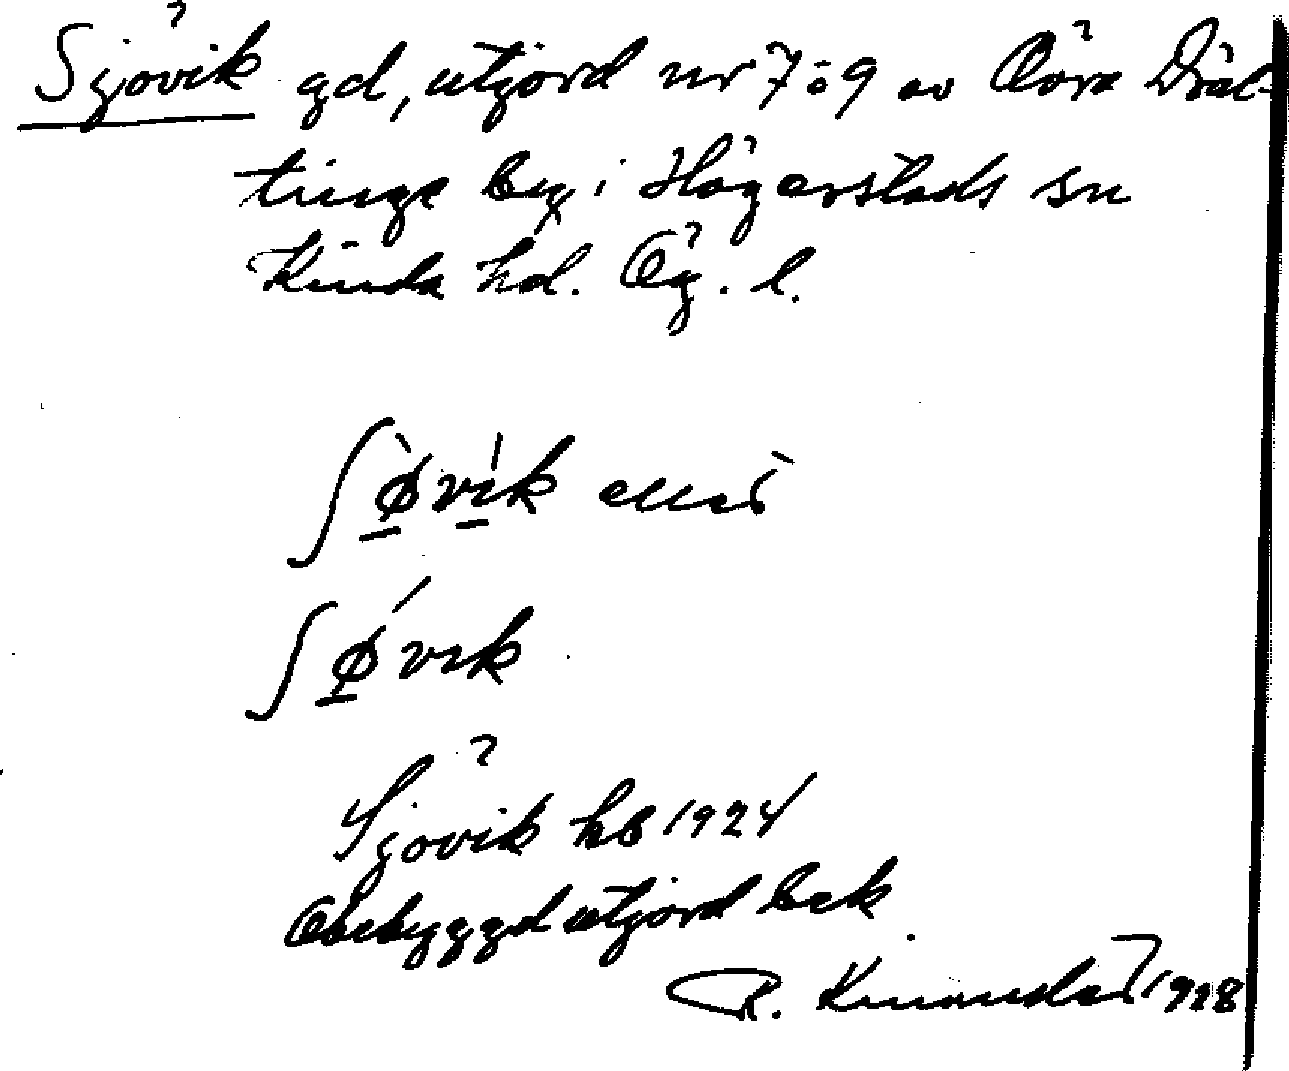 Sjövik gd, utjord nr 7 o 9 av Övra Dräl-
tinge by i Hägerstads sn
Kinda hd. Ög. l.
ʃø̀vi̍k eller
ʃǿvik
Sjövik hb 1924
Obebyggd utjord bek
1928